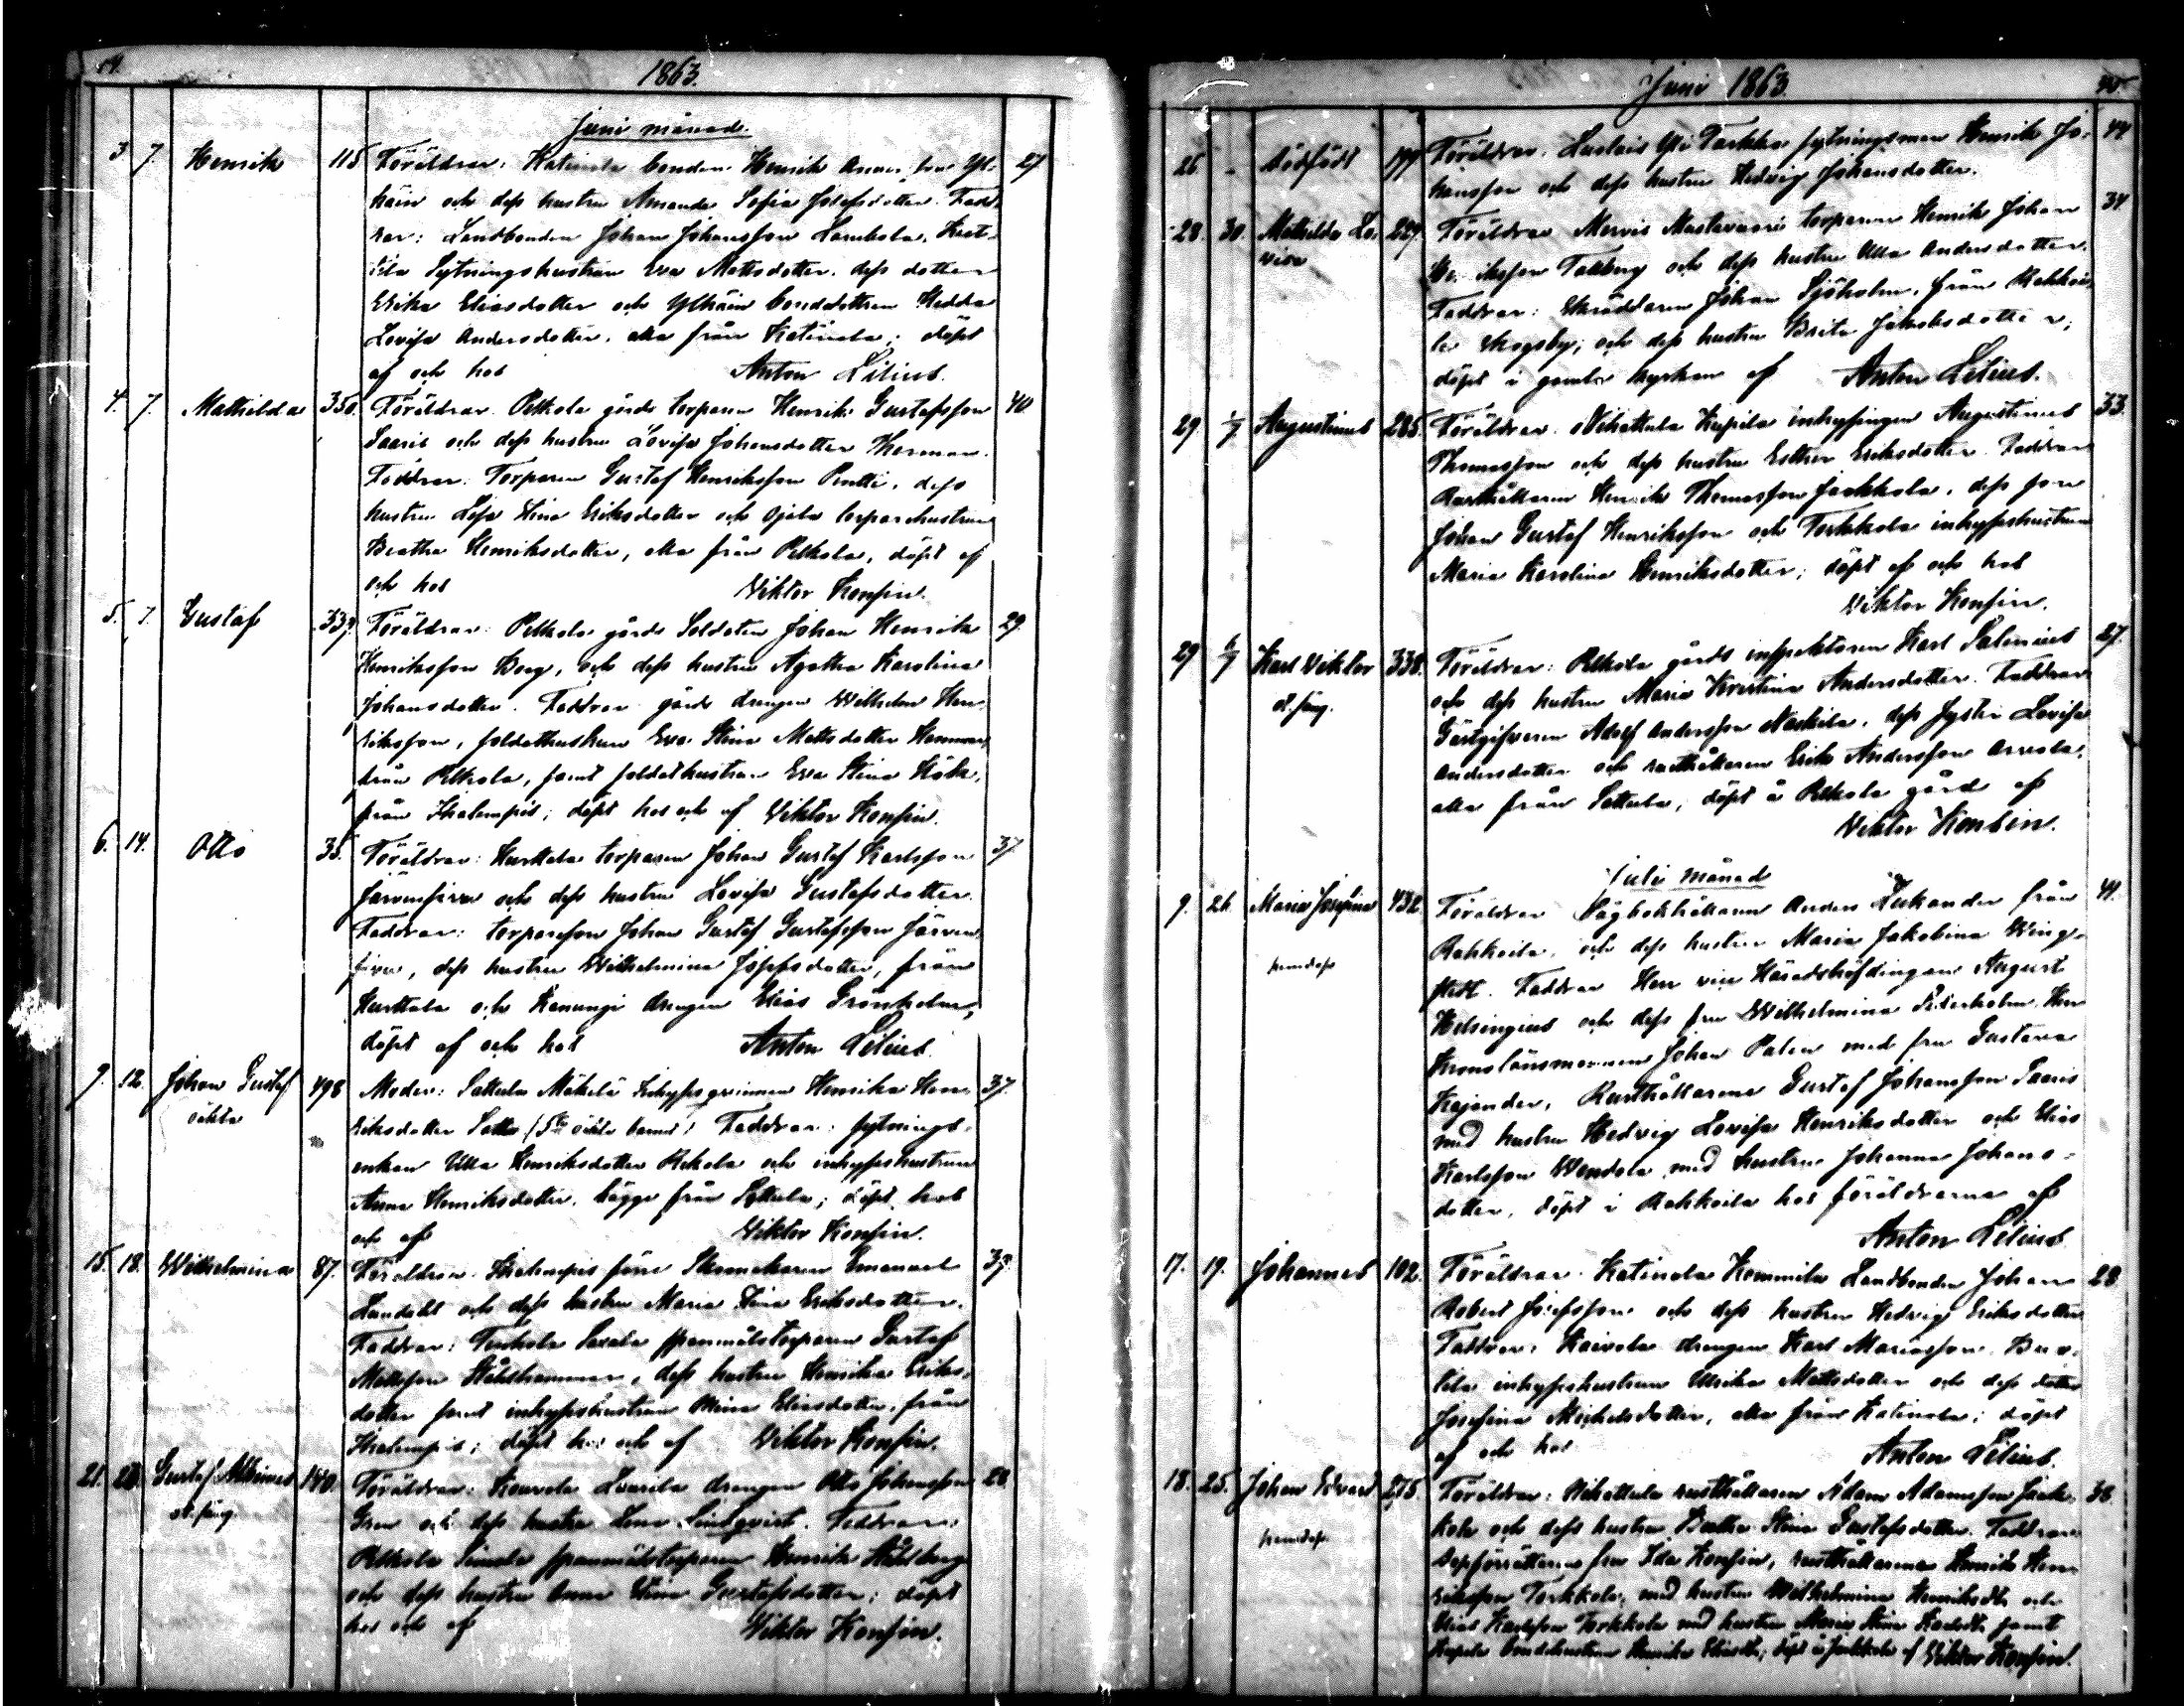 1863.
Juni månad.
3 7. Henrik 118 Föräldrar: Katinala bonden Henrik Yl- 27
häin och dess hustru Amanda Sofia Josefsdotter. Fadd-
rar: Landbonden Johan Johansson
Sytningshustrun Eva Mattsdotter, dess dotter
Erika Eliasdotter och Ylhäin bondedottren Hedda
Lovisa Andersdotter, alla från Katinala; döpt
af och hos Anton Lilius.
4. 7. Mathilda 350. Föräldrar: Pelkola gårds torparen Henrik Gustafsson 40
Saaris och dess hustru Lovisa Johansdotter Herman.
Faddrar: Torparen Gustaf Henriksson Pentti, dess
hustru Lisa Stina Eriksdotter och Ojala torparehustrun
Beatha Henriksdotter, alla från Pelkola, döpt af
och hos Viktor Konsin.
5. 7. Gustaf 337. Föräldrar: Pelkola gårds Soldaten Johan Henrik 29.
Henriksson Borg, och dess hustru Agatha Karolina
Johansdotter. Faddrar: gårds drengen Wilhelm Hen-
riksson, soldathustrun Eva Stina Mattsdotter
från Pelkola, samt soldathustrun Eva Stina
från Ihalempis; döpt hos och af Viktor Konsin.
6. 14. Otto 35. Föräldrar: Hurttala torparen Johan Gustaf Karlsson 37
Järvensivu och dess hustru Lovisa Gustafsdotter.
Faddrar: torparesson Johan Gustaf Gustafsson Järven-
sivu, dess hustru Wilhelmina Josefsdotter, från
Hurttala och Kanungi drengen Elias Grönholm,
döpt af och hos Anton Lilius.
9. 12. Johan Gustaf 498 Moder: Sattula Mäkelä Inhyseqvinnan Henrika Hen- 37.
oäkta riksdotter (5te oäkta barnet). Faddrar: sytnings-
enkan Ulla Henriksdotter Pekola och inhyseshustrun
Anna Henriksdotter, bägge från Sattula; döpt hos
och af Viktor Konsin.
15. 18. Wilhelmina 87. Föräldrar: Ihalempis Skomakaren Emanuel 39.
och dess hustru Maria Stina Eriksdotter.
Faddrar: spannmålstorparen Gustaf
Mattsson Stålhammar, dess hustru Henrika Eriks-
dotter samt inhyseshustrun Mina Eliasdotter, från
Ihalempis; döpt hos och af Viktor Konsin.
21. Gustaf Albinus 140. Föräldrar: drengen Otto Johansson 28
Gren och dess hustru Lena Lindqvist. Faddrar:
Pelkola Simola spannmålstorparen Henrik Stålberg
och dess hustru Anna Stina Gustafsdotter; döpt
hos och af Viktor Konsin.
Juni 1863. 40.
26 - dödfödt 199 Föräldrar: Yli Tarkka sytningsman Henrik Jo- 44
hansson och dess hustru Hedvig Johansdotter.
28. 30. Mathilda Lo- 229. Föräldrar: Mervis Mustavuori torparen Henrik Johan 34
visa Henriksson Tallberg och dess hustru Ulla Andersdotter.
Faddrar: Skräddaren Johan Sjöholm, från Rahkoi-
la Skogsby; och dess hustru Brita Jakobsdotter;
döpt i gamla kyrkan af Anton Lilius.
29. 1/7 Augustinus 285. Föräldrar: Vihattula Kupila inhysingen Augustinus 33.
Thomasson och dess hustru Esther Eriksdotter. Faddrar:
Rusthållaren Henrik Thomasson Jaakkola, dess son
Johan Gustaf Henriksson och Torkkola inhyseshustrun
Maria Karolina Henriksdotter; döpt af och hos
Viktor Konsin.
29 6/7 Karl Viktor 338. Föräldrar: Pelkola gårds inspektoren Karl Salenius 27.
och dess hustru Maria Kristina Andersdotter. Faddrar:
Gästgifvaren Adolf Andersson Nackila, dess syster Lovisa
Andersdotter och rusthållaren Erik Andersson Arvola,
alla från Sattula; döpt å Pelkola gård af
Viktor Konsin.
Juli månad
9. 26. Maria Josefina 432 Föräldrar: Sågbokhållaren Anders Lukander från 41.
Rahkoila, och dess hustru Maria Jakobina Wing-
stedt. Faddrar: Herr vice Häradshöfdingen August
Helsingius och dess fru Wilhelmina Herr
Kronolänsmannen Johan Palen med fru Gustava
Kajander, Rusthållarena Gustaf Johansson Saaris
med hustru Hedvig Lovisa Henriksdotter och Elias
Karlsson Wendola med hustru Johanna Johans-
dotter, döpt i Rahkoila hos föräldrarna af
Anton Lilius
17. 19. Johannes 102. Föräldrar: Katinala Kommila Landbonden Johan 28
Robert Josefsson och dess hustru Hedvig Eriksdotter.
Faddrar: Kaivola drengen Karl Mariasson
inhyseshustrun Ulrika Mattsdotter och dess dotter
Josefina Mickelsdotter, alla från Katinala; döpt
af och hos Anton Lilius.
18. 25. Johan Edvard 275. Föräldrar: Vihattula rusthållaren Adam Adamsson Jaak- 38.
kola och dess hustru Beatha Stina Gustafsdotter. Faddrar:
dopförrättaren fru Ida Konsin, rusthållarena Henrik Hen-
riksson Torkkola, med hustru Wilhelmina Henriksdr. och
Elias Karlsson Torkkola med hustru Maria Stina Karlsdr. samt
Kupila bondehustrun Henrika Eliasdr.; döpt i Jaakkola af Viktor Konsin.